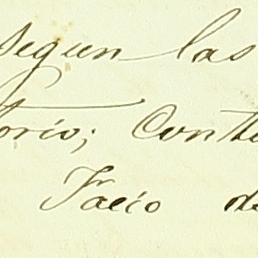 segun las
torio; Conti
Facio de